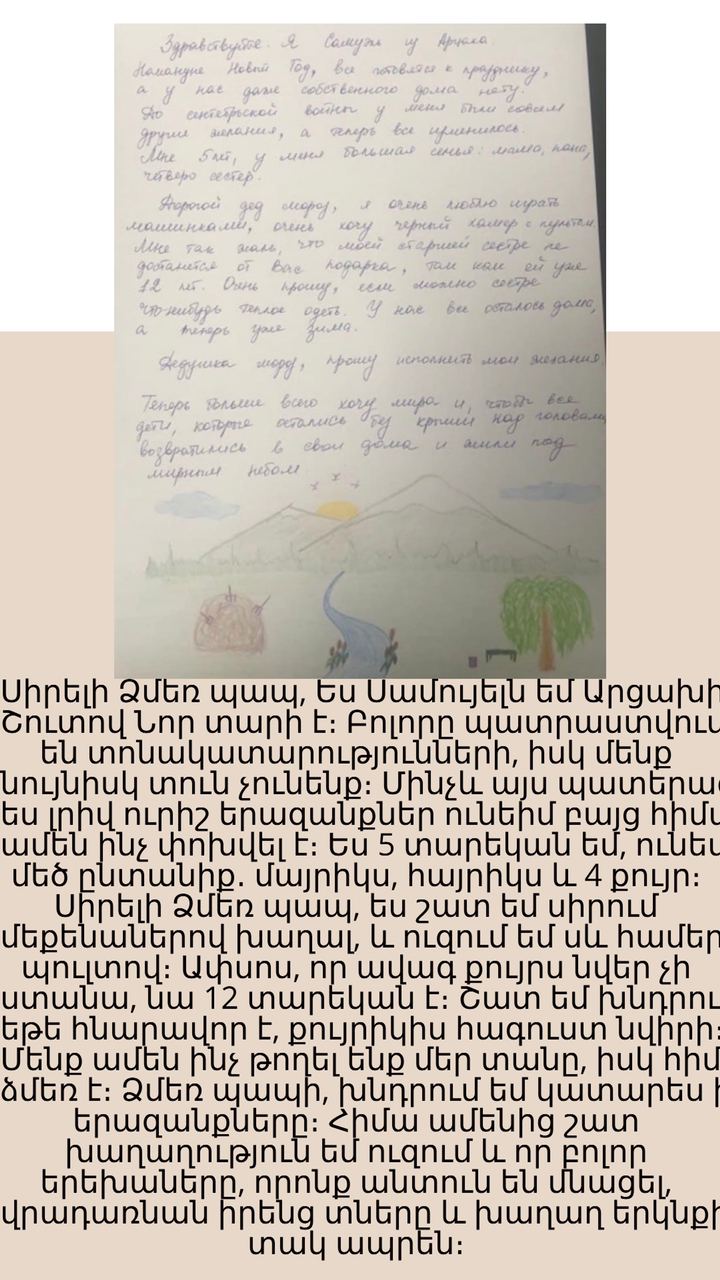 Здравствуйте. Я Самуэль из Арцаха.
Накануне Новый Год, все готовятся к празднику,
а у нас даже собственного дома нету.
До сентябрьской войны у меня были совсем
другие желания, а теперь все изменилось.
Мне 5 лет, у меня большая семья: мама, папа,
четверо сестер.
Дорогой дед мороз, я очень люблю играть
машинками, очень хочу черный хамер с пультом.
Мне так жаль, что моей старшей сестре не
достанется от Вас подарка, там как ей уже
12 лет. Очень прошу, если можно сестре
что-нибудь теплое одеть. У нас все осталось дома,
а теперь уже зима.
Дедушка мороз, прошу исполнить мои желания.
Теперь больше всего хочу мира и, чтобы все
дети, которые остались без крыши над головами
возвратились в свои дома и жили под
мирным небом
Սիրելի Ձմեռ պապ, Ես Սամույելն եմ Արցախի
Շուտով Նոր տարի է։ Բոլորը պատրաստվում
են տոնակատարությունների, իսկ մենք
նույնիսկ տուն չունենք։ Մինչև այս պատերազ
ես լրիվ ուրիշ երազանքներ ունեիմ բայց հիմա
ամեն ինչ փոխվել է։ Ես 5 տարեկան եմ, ունեմ
մեծ ընտանիք. մայրիկս, հայրիկս և 4 քույր։
Սիրելի Ձմեռ պապ, ես շատ եմ սիրում
մեքենաներով խաղալ, և ուզում եմ սև համեր
պուլտով։ Ափսոս, որ ավագ քույրս նվեր չի
ստանա, նա 12 տարեկան է։ Շատ եմ խնդրում
եթե հնարավոր է, քույրիկիս հագուստ նվիրի։
Մենք ամեն ինչ թողել ենք մեր տանը, իսկ հիմ
ձմեռ է։ Ձմեռ պապի, խնդրում եմ կատարես ի
երազանքները։ Հիմա ամենից շատ
խաղաղություն եմ ուզում և որ բոլոր
երեխաները, որոնք անտուն են մնացել,
վրադառնան իրենց տները և խաղաղ երկնքի
տակ ապրեն։